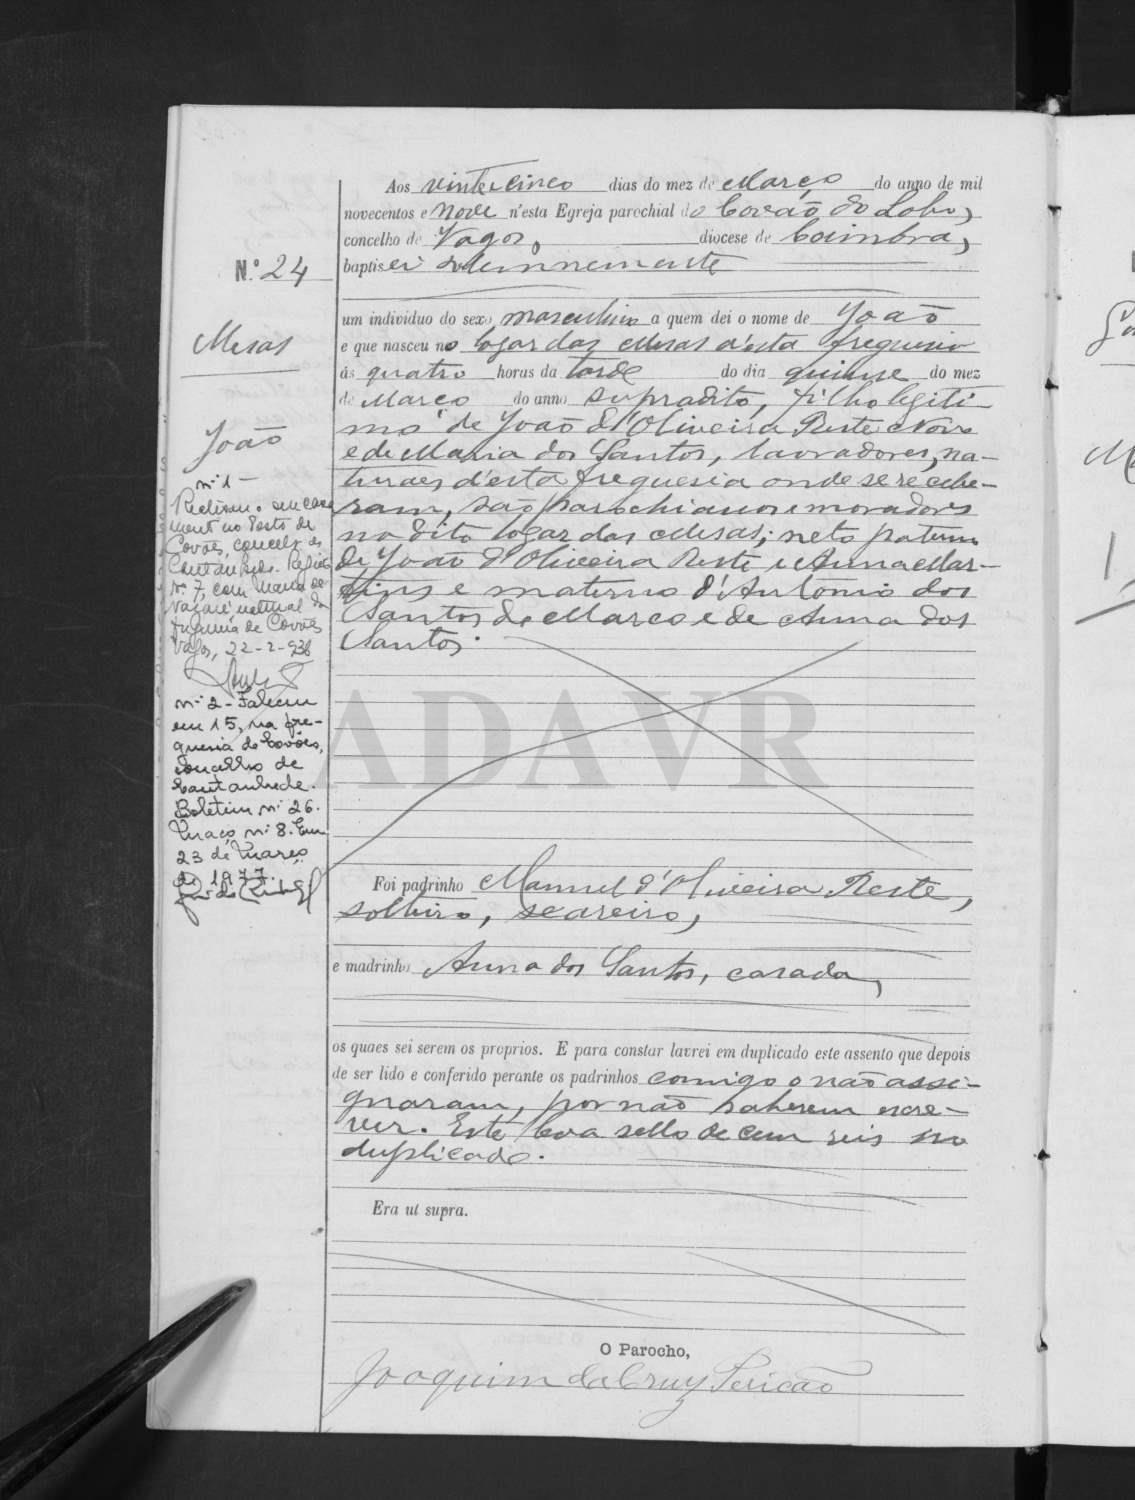 Aos vinte e cinco dias do mez de Março do anno de mil
novecentos e nove n'esta Egreja parochial do Covão do Lobo,
concelho de Vagos, diocese de Coimbra,
baptisei solemnemente
um individuo do sexo masculino a quem dei o nome de João
e que nasceu no logar das Mesas d'esta freguesia
ás quatro horas da tarde do dia quinze do mez
de Março do anno supradito, filho legiti-
mo de João d'Oliveira Reste Novo
e de Maria dos Santos, lavradores, na-
turaes d'esta freguesia onde se recebe-
ram, são parochianos e moradores
no dito logar das Mesas; neto paterno
de João d'Oliveira Reste e Anna Mar-
tins e materno d'Antonio dos
Santos de Marco e de Anna dos
Santos.
Foi padrinho Manuel d'Oliveira Reste,
solteiro, seareiro,
e madrinha Anna dos Santos, casada,
os quaes sei serem os proprios. E para constar lavrei em duplicado este assento que depois
de ser lido e conferido perante os padrinhos comigo o não assi-
gnaram, por não saberem escre-
ver. Este leva sello de cem reis no
duplicado.
Era ut supra.
O Parocho,
Joaquim da Cruz Pericão
N.º 24
Mesas
João
nº 1 -
Realisou o seu casa
ment no Posto de
Covões, concelho de
Cantanhede. Registo
nº 7, com Maria de
Nazaré natural da
freguesia de Covões
Vagos, 22-2-938
nº 2 - Faleceu
em 15, na fre-
guesia de Covões,
concelho de
Cantanhede.
Boletim nº 26.
Maço nº 8. Em
23 de Março
de 1977.
ADAVR